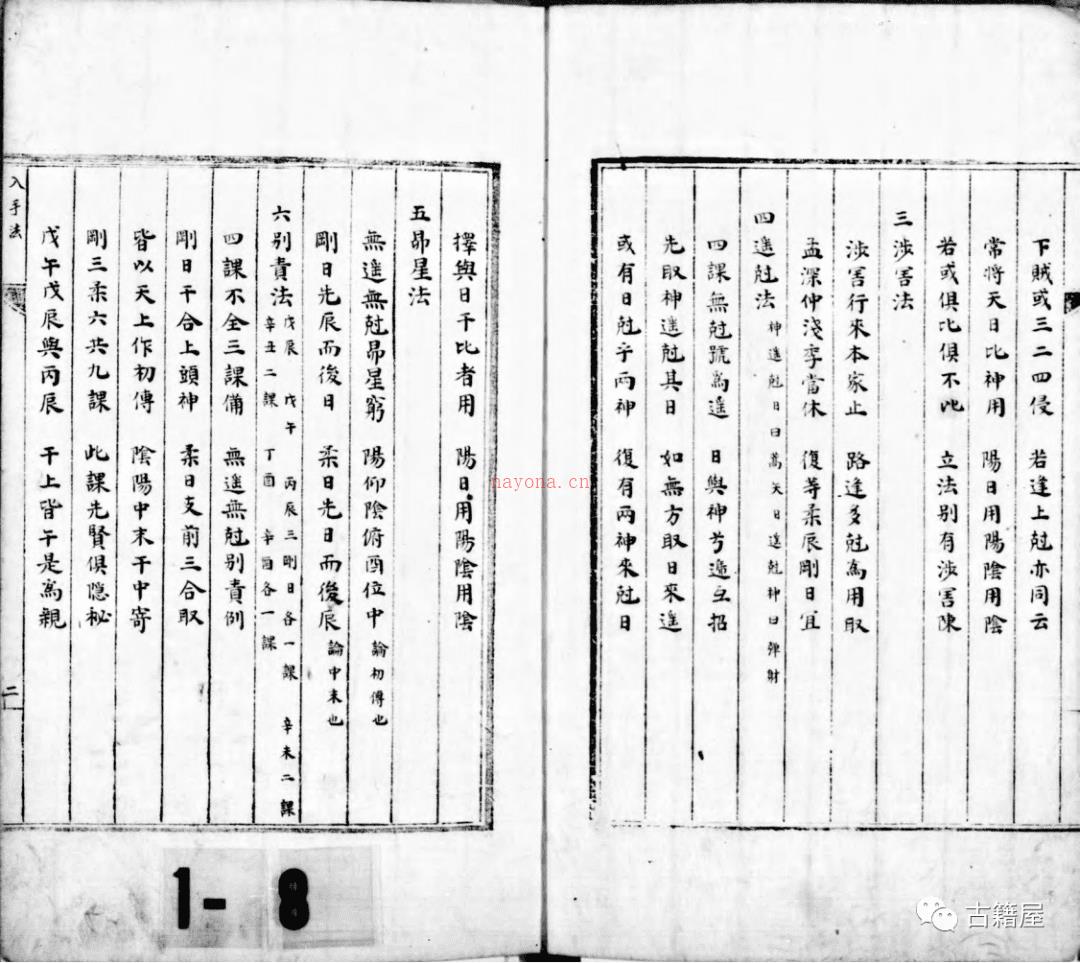 下賊或三二四侵　若逢上尅亦同云
常將天日比神用　陽日用陽陰用陰
若或俱比俱不比　立法别有涉害陳
三涉害法
涉害行來本家止　路逢多尅為用取
孟深仲淺季當休　復等柔辰剛日宜
四遥尅法　神遥尅日曰蒿矢日遥尅神曰彈射
四課無尅號為遥　日與神兮遞互招
先取神遥尅其日　如無方取日來遥
或有日尅乎兩神　復有兩神來尅日
擇與日干比者用　陽日用陽陰用陰
五昴星法
無遥無尅昴星窮　陽仰陰俯酉位中　論初傳也
剛日先辰而後日　柔日先日而後辰　論中末也
六别責法　戊辰　戊午　丙辰三剛日各一課　辛未二課
辛丑二課　丁酉　辛酉各一課
四課不全三課備　無遥無尅别責例
剛日干合上頭神　柔日支前三合取
皆以天上作初傳　陰陽中末干中寄
剛三柔六共九課　此課先賢俱隱秘
戊午戊辰與丙辰　干上皆午是為親
入手法
二
1-8
nayona.cn
古籍屋